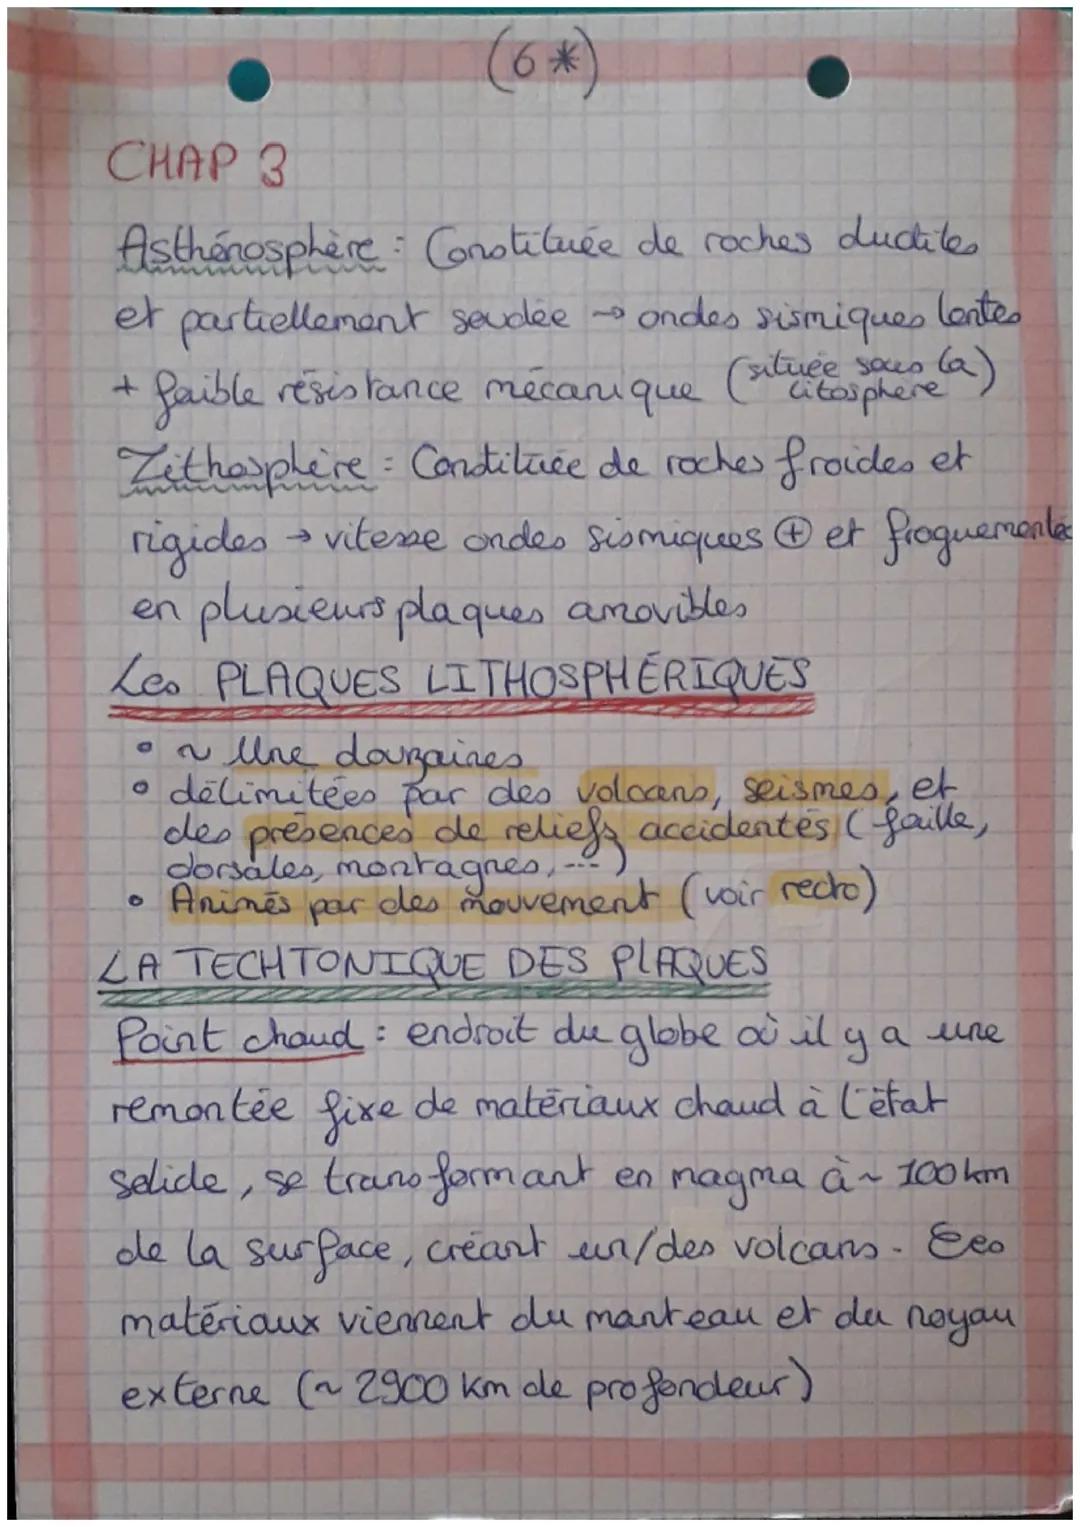 (6*)
CHAP 3
Asthénosphère : Constituée de roches ductiles
et partiellement soudée → ondes sismiques lentes
+ faible résistance mécanique (située sous la
litosphère)
Lithosphère : Constituée de roches froides et
rigides → vitesse ondes sismiques ⊕ et fraguementée
en plusieurs plaques amovibles
Les PLAQUES LITHOSPHÉRIQUES
• ~ Une douzaines
• délimitées par des volcans, seismes, et
des présences de reliefs accidentés (faille,
dorsales, montagnes, ---)
• Animés par des mouvement (voir recto)
LA TECHTONIQUE DES PLAQUES
Point chaud : endroit du globe où il y a une
remontée fixe de matériaux chaud à l'état
solide, se transformant en magma à ~ 100 km
de la surface, créant un/des volcans. Ces
matériaux viennent du manteau et du noyau
externe (~ 2900 km de profondeur)